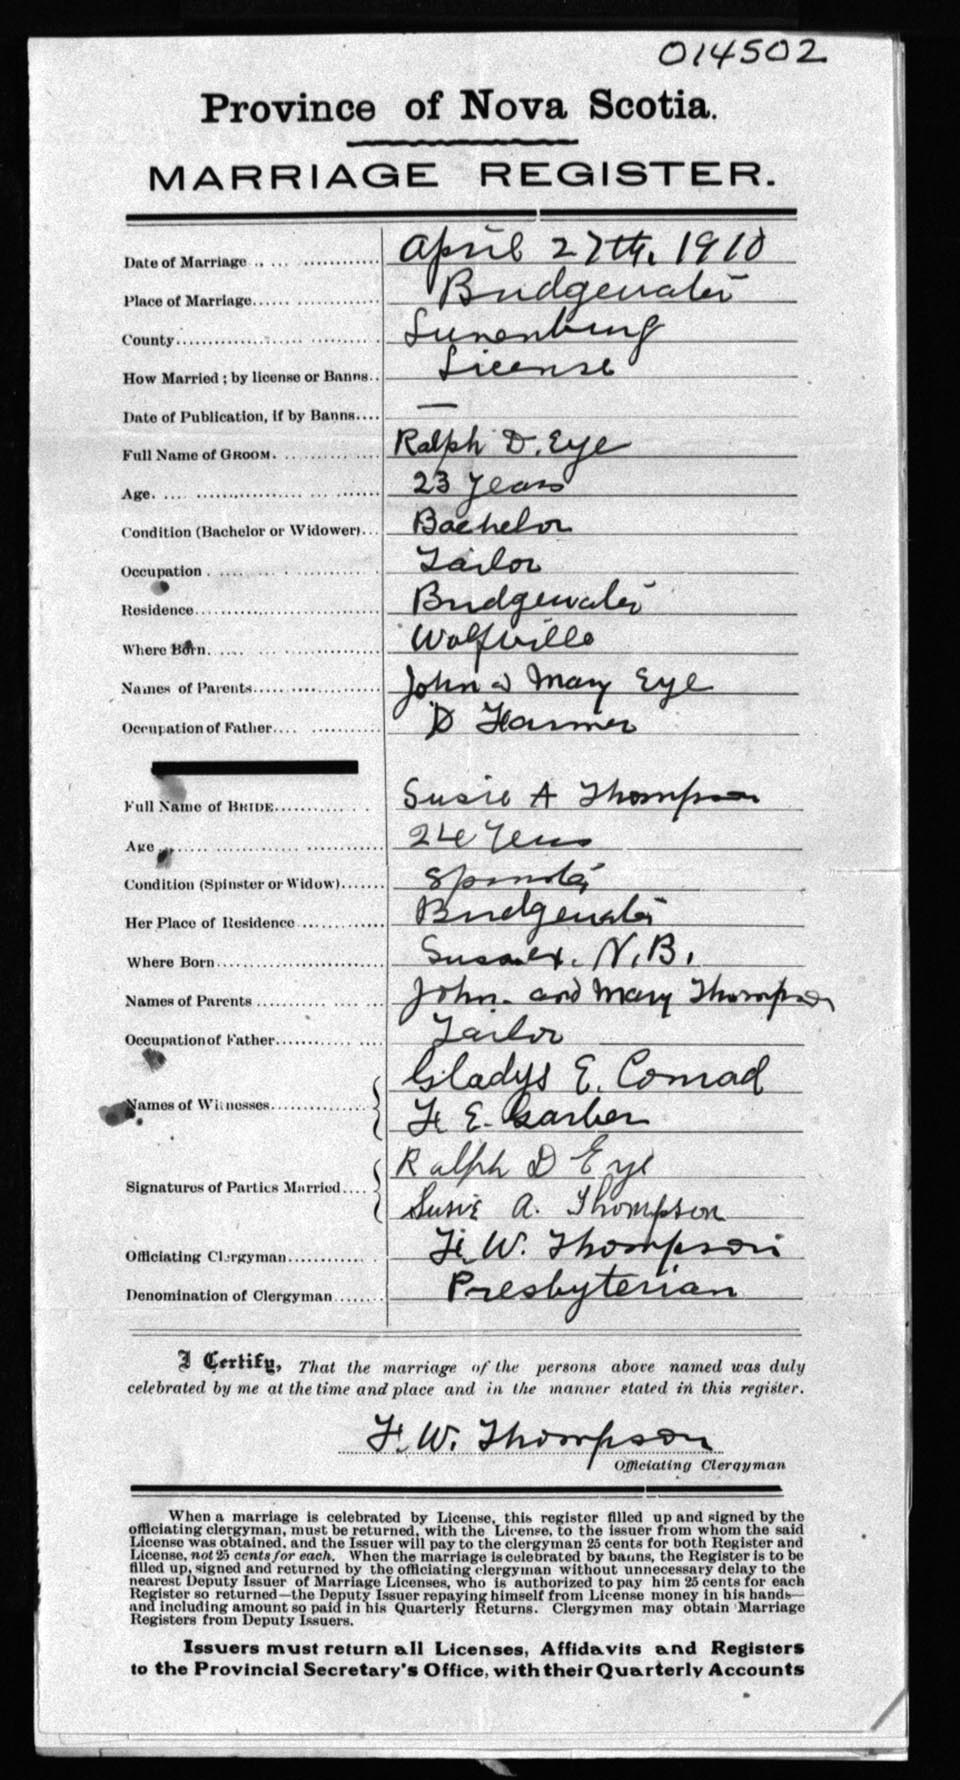 014502
Province of Nova Scotia.
MARRIAGE REGISTER.
Date of Marriage April 27th, 1910
Place of Marriage Bridgewater
County Lunenburg
How Married ; by license or Banns.. License
Date of Publication, if by Banns.... —
Full Name of GROOM. Ralph D. Eye
Age. 23 years
Condition (Bachelor or Widower)... Bachelor
Occupation Tailor
Residence Bridgewater
Where Born Wolfville
Names of Parents John & Mary Eye
Occupation of Father Farmer
Full Name of BRIDE Susie A Thompson
Age 24 Years
Condition (Spinster or Widow) Spinster
Her Place of Residence Bridgewater
Where Born Sussex, N.B.
Names of Parents John and Mary Thompson
Occupation of Father Tailor
Gladys E. Conrad
Names of Witnesses F. E. Garber
Ralph D Eye
Signatures of Parties Married Susie A. Thompson
Officiating Clergyman F. W. Thompson
Denomination of Clergyman Presbyterian
I Certify, That the marriage of the persons above named was duly
celebrated by me at the time and place and in the manner stated in this register.
F. W. Thompson
Officiating Clergyman
When a marriage is celebrated by License, this register filled up and signed by the
officiating clergyman, must be returned, with the License, to the issuer from whom the said
License was obtained, and the Issuer will pay to the clergyman 25 cents for both Register and
License, not 25 cents for each. When the marriage is celebrated by banns, the Register is to be
filled up, signed and returned by the officiating clergyman without unnecessary delay to the
nearest Deputy Issuer of Marriage Licenses, who is authorized to pay him 25 cents for each
Register so returned—the Deputy Issuer repaying himself from License money in his hands—
and including amount so paid in his Quarterly Returns. Clergymen may obtain Marriage
Registers from Deputy Issuers.
Issuers must return all Licenses, Affidavits and Registers
to the Provincial Secretary's Office, with their Quarterly Accounts